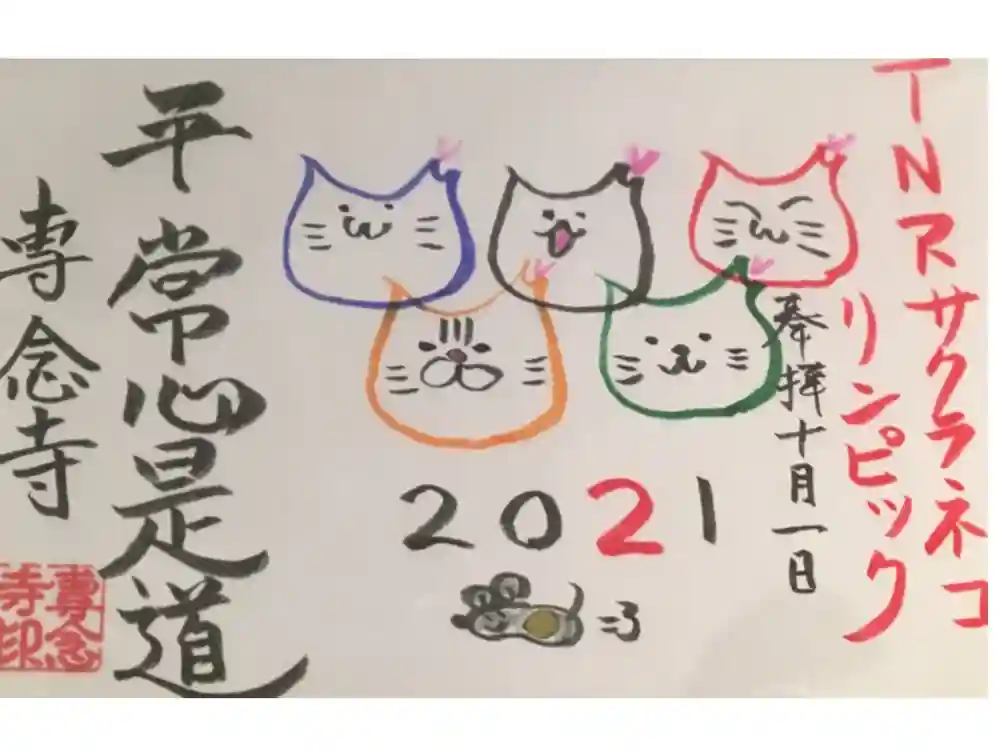 TNRサクラネコ
リンピック
奉拝十月一日
2021
=3
平常心是道
専念寺
専念
寺印